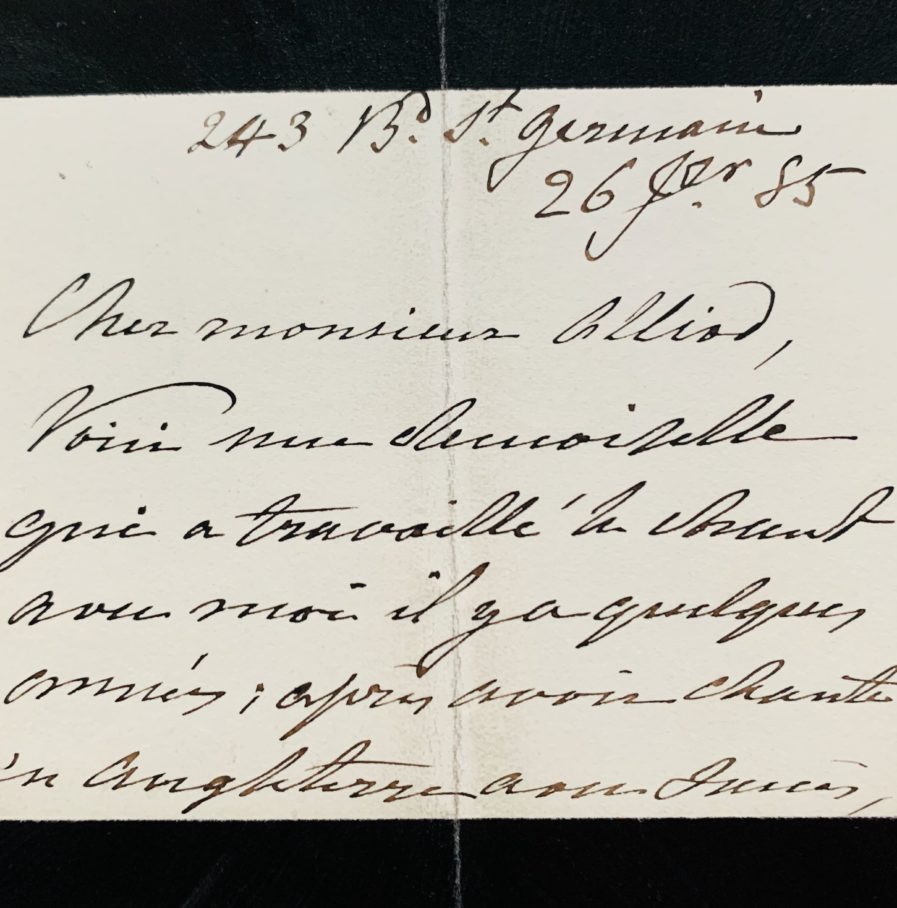 243 Bd. St. Germain
26 Jer. 85
Cher monsieur Alliod,
Voici une demoiselle
qui a travaillé le chant
avec moi il y a quelques
années ; après avoir chanté
en Angleterre avec succès,